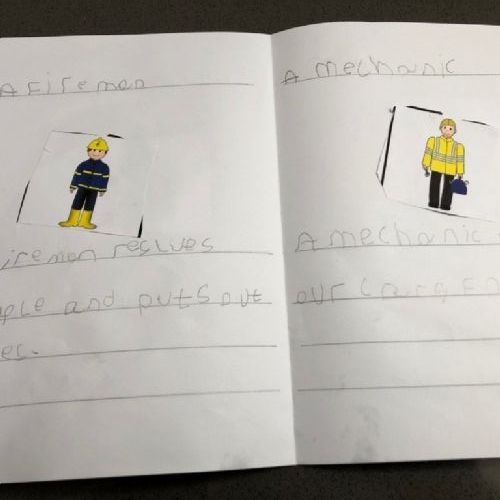 A Fireman
ireman rescues
ople and puts out
er.
A mechanic
A mechanic
our